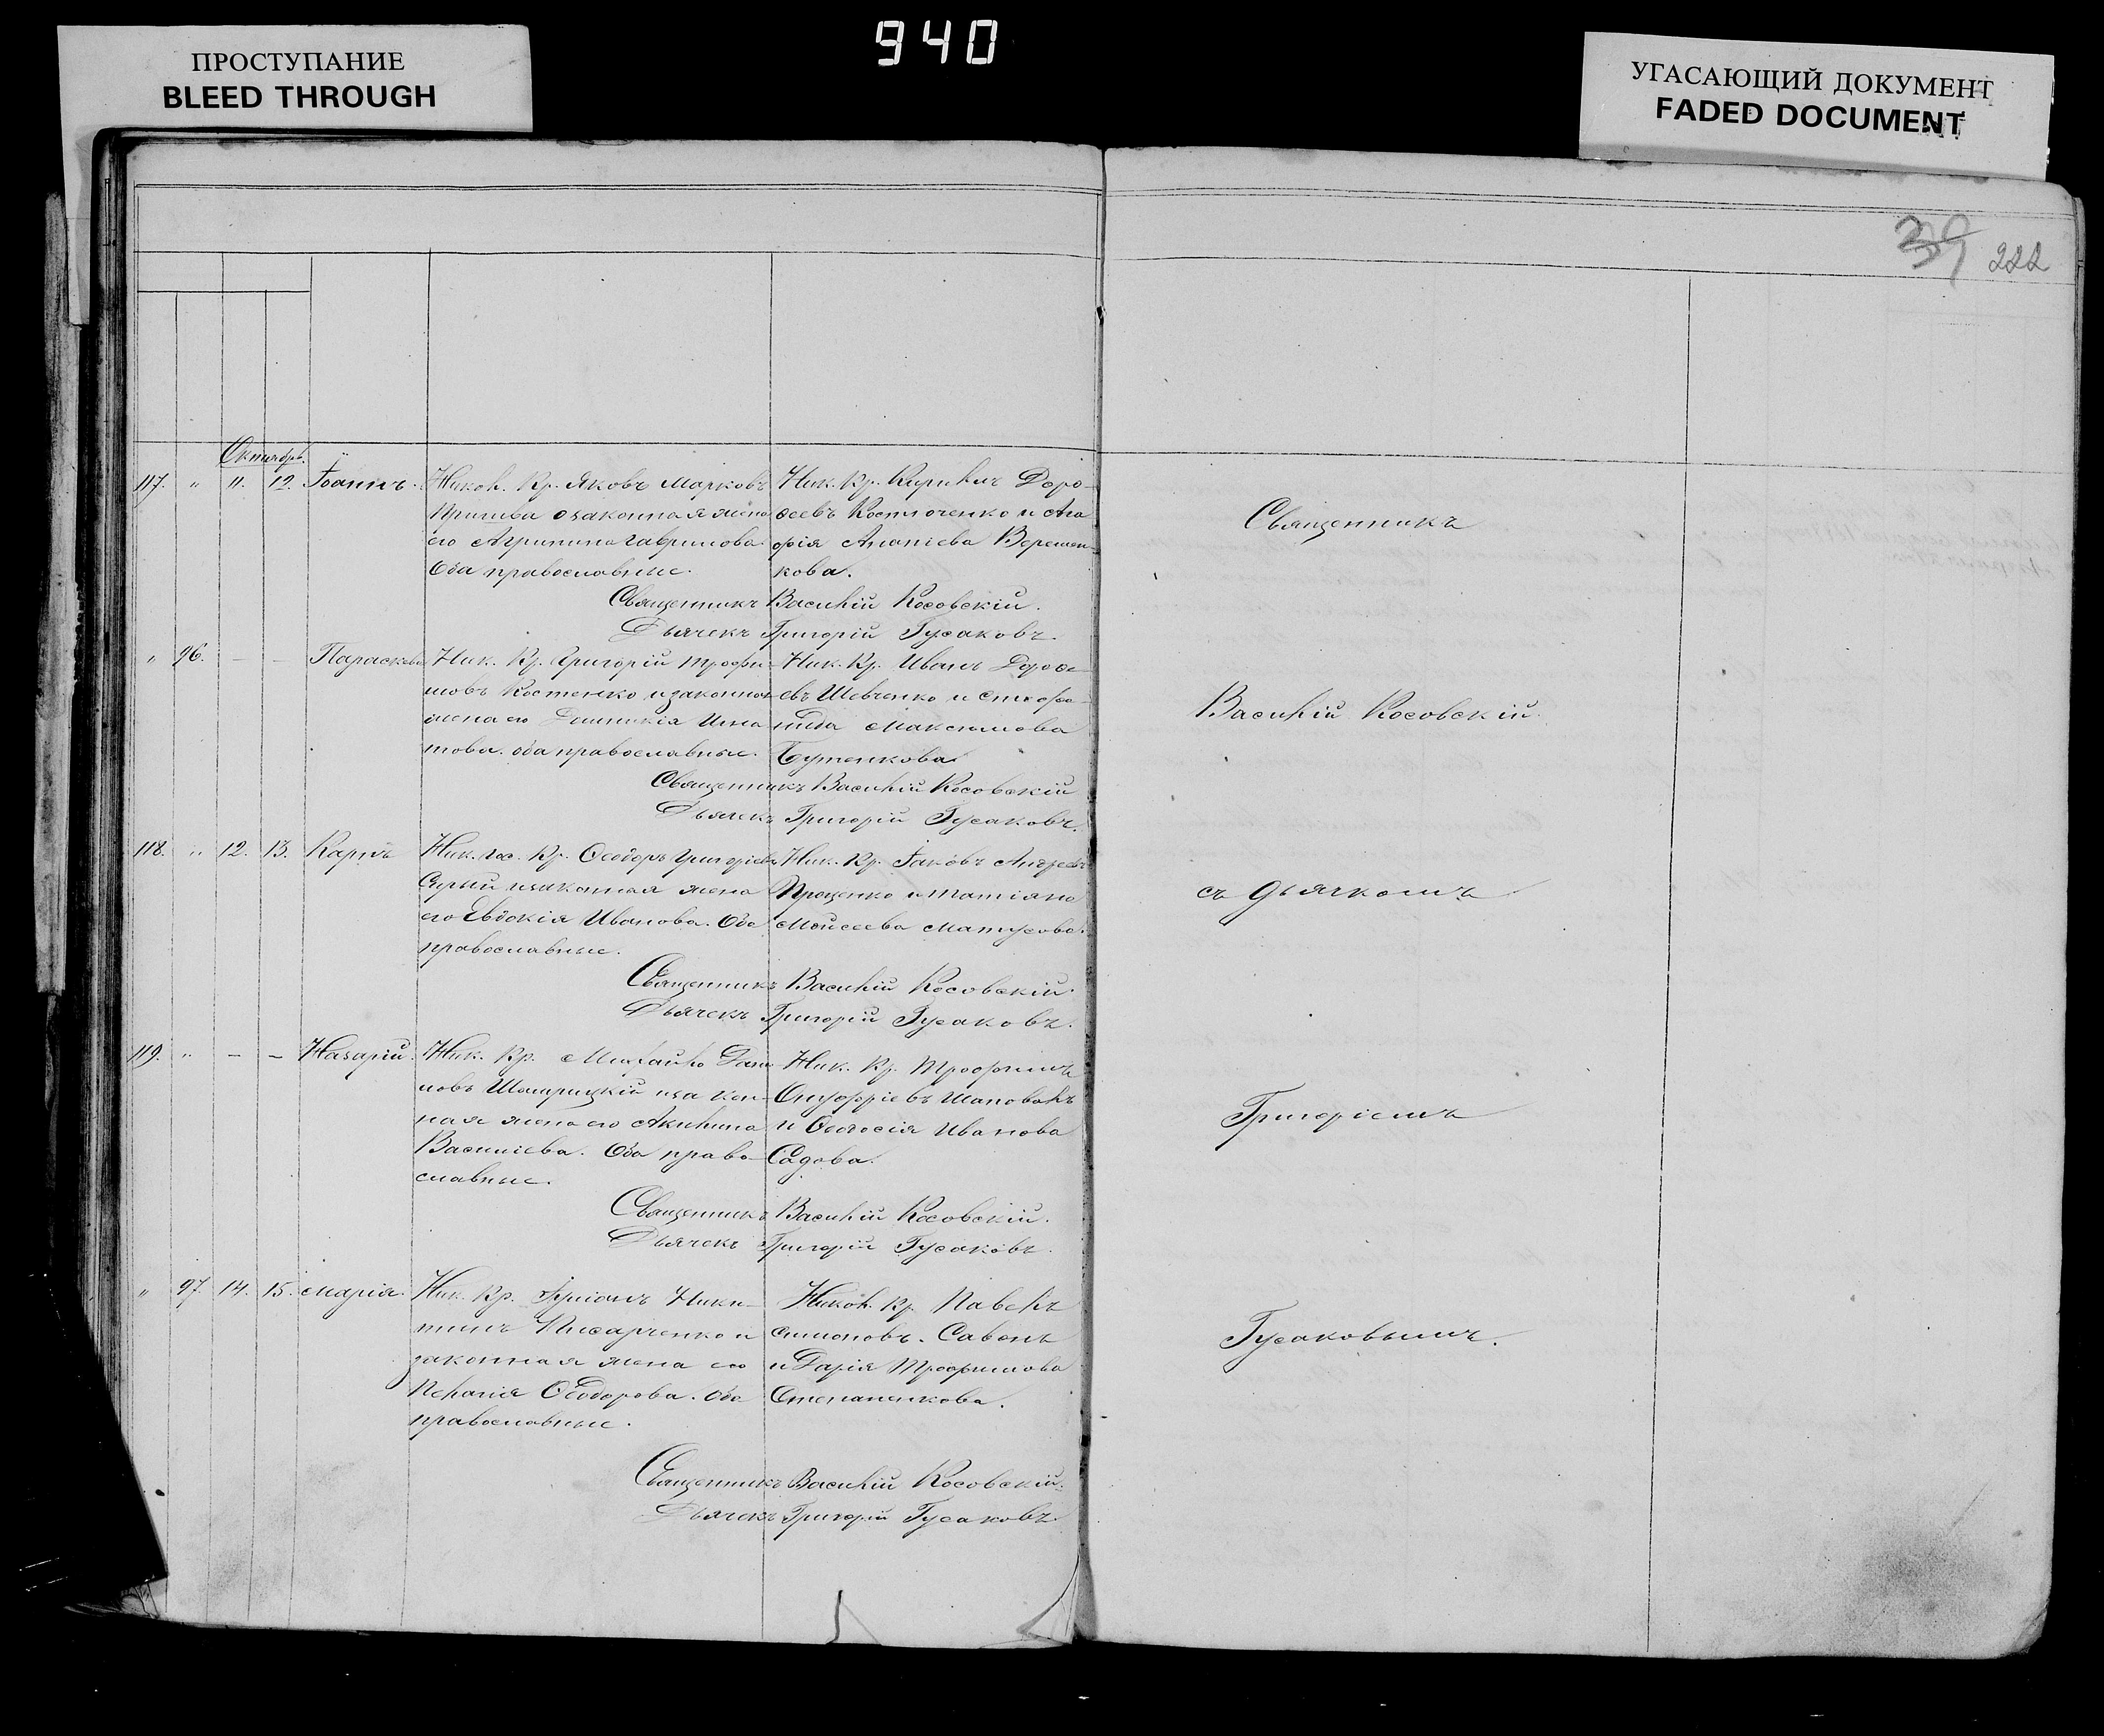 940
ПРОСТУПАНИЕ
BLEED THROUGH
УГАСАЮЩИЙ ДОКУМЕНТ
FADED DOCUMENT
39 222
Октябрь.
117. " 11. 12. Іоаннъ. Никол. Кр. Яковъ Марковъ
законная жена
его Агрипина Гаврилова.
Оба православные.
Ник. Кр. Кирилъ Доро-
феевъ Костюченко и Ага-
фія Ананіева Веремен-
кова.
Священникъ Василій Косовскій.
Дьячекъ Григорій Гусаковъ.
" 96. — — Параскева Ник. Кр. Григорій Трофи-
мовъ Костенко и законная
жена его Игна-
това. оба православные.
Ник. Кр. Иванъ Дорофе-
евъ Шевченко и Стефа-
нида Максимова
Бутенкова
Священникъ Василій Косовскій
Дьячекъ Григорій Гусаковъ.
118. " 12. 13. Карпъ Ник. Гос. Кр. Ѳеодоръ Григоріевъ
Сѣрый и законная жена
его Евдокія Иванова. Оба
православные.
Ник. Кр. Іаковъ Андреевъ
Проценко и Татіяна
Моисеева Матусова.
Священникъ Василій Косовскій.
Дьячекъ Григорій Гусаковъ.
119. " — — Назарій. Ник. Кр. Михаилъ Дани-
ловъ и закон-
ная жена его Акилина
Василіева. Оба право-
славные.
Ник. Кр. Трофимъ
Онуфріевъ Шаповалъ
и Ѳеодосія Иванова
Садова.
Священникъ Василій Косовскій.
Дьячекъ Григорій Гусаковъ.
" 97. 14. 15. Марія. Ник. Кр. Ники-
тинъ Писарченко и
законная жена его
Пелагія Ѳеодорова. Оба
православные.
Никол. Кр. Павелъ
Симоновъ. Савонъ
и Дарія Трофимова
Степаненкова.
Священникъ Василій Косовскій.
Дьячекъ Григорій Гусаковъ.
Священникъ
Василій Косовскій.
съ дьячкомъ
Григоріемъ
Гусаковымъ.